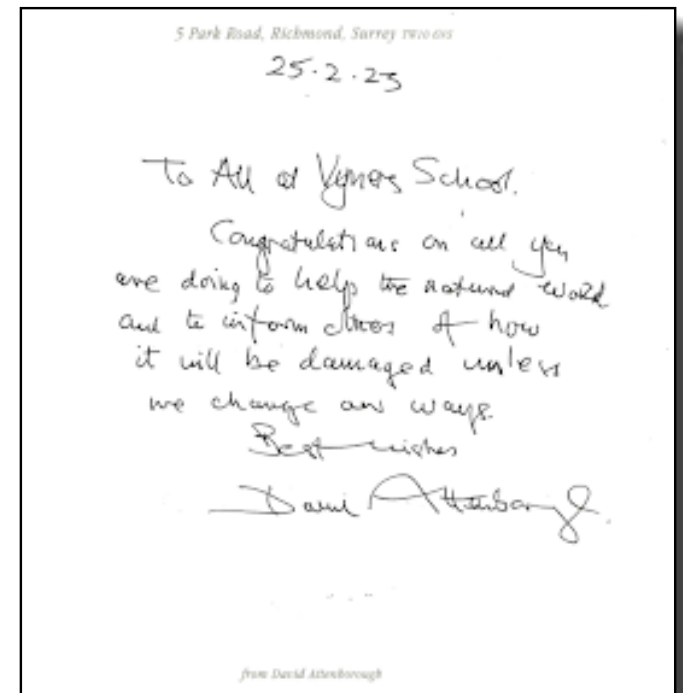 5 Park Road, Richmond, Surrey TW10 6NS
25.2.23
To All at Vyners School.
Congratulations on all you
are doing to help the natural world
and to inform others of how
it will be damaged unless
we change our ways.
Best wishes
David Attenborough.
from David Attenborough